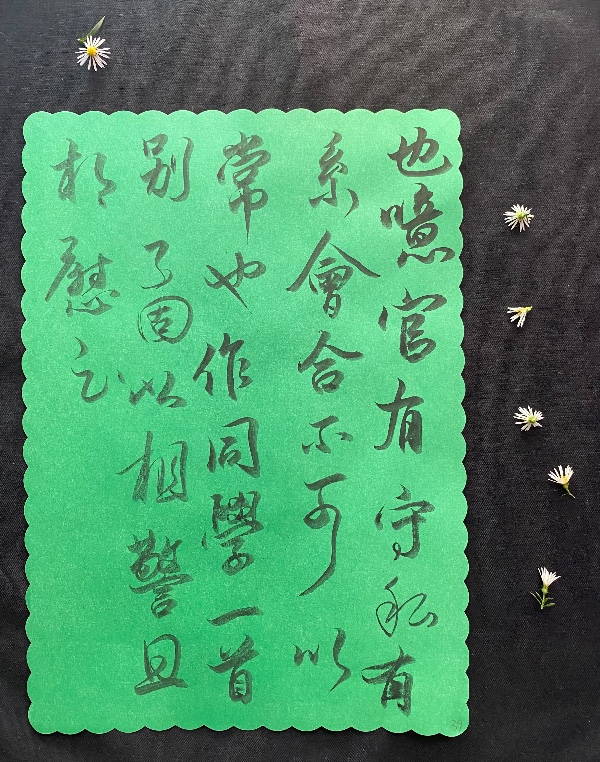 也噫官有守私有
系會合不可以
常也作同學一首
别子固以相警且
相慰云